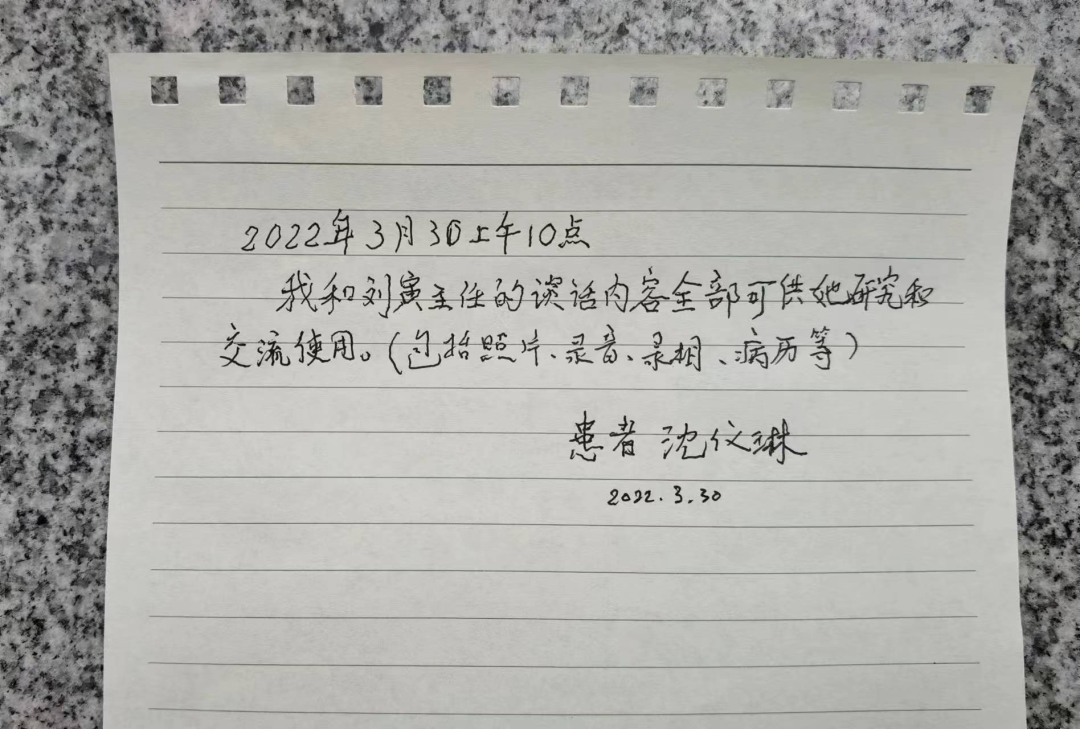 2022年3月30上午10点
我和刘寅主任的谈话内容全部可供她研究和
交流使用。(包括照片、录音、录相、病历等)
患者 沈仪琳
2022.3.30